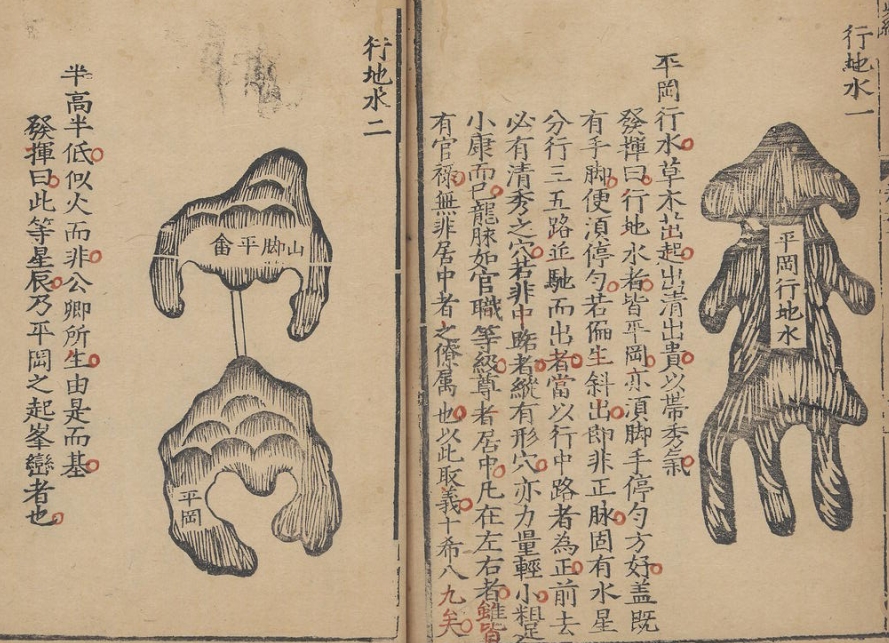 行地水一
平岡行地水
平岡行水草木茁起出清出貴以帶秀氣
發揮曰行地水者皆平岡亦須脚手停勻方好蓋既
有手脚便須停勻若偏生斜出即非正脉固有水星
分行三五路並馳而出者當以行中路者為正前去
必有清秀之穴若非中路者縱有形穴亦力量輕小粗足
小康而已龍脉如官職等級尊者居中凡在左右者雖皆
有官祿無非居中者之僚属也以此取義十希八九矣
行地水二
山脚平畬
平岡
半高半低似火而非公卿所生由是而基
發揮曰此等星辰乃平岡之起峯巒者也